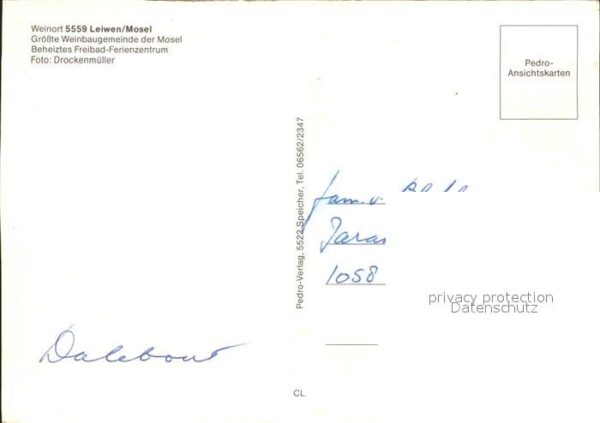 Weinort 5559 Leiwen/Mosel
Größte Weinbaugemeinde der Mosel
Beheiztes Freibad-Ferienzentrum
Foto: Drockenmüller
Dalebout
Pedro-Verlag, 5522 Speicher, Tel. 06562/2347
CL
Pedro-
Ansichtskarten
fam. v.
Jaras
1058
privacy protection
Datenschutz